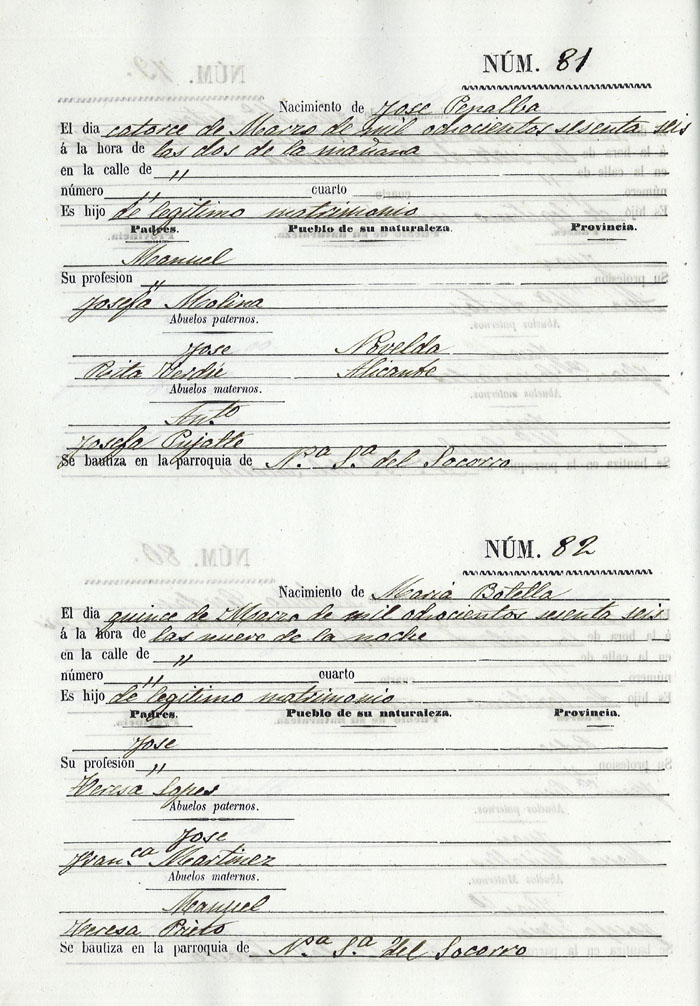 NÚM. 81
Nacimiento de Jose Penalba
El dia catorce de Marzo de mil ochocientos sesenta seis
á la hora de las dos de la mañana
en la calle de "
número " cuarto
Es hijo de legitimo matrimonio
Padres. Pueblo de su naturaleza. Provincia.
Manuel
Su profesion "
Josefa Molina
Abuelos paternos.
Jose Novelda
Rita Alicante
Abuelos maternos.
Ant.to
Josefa Pujalte
Se bautiza en la parroquia de N.a S.a del Socorro
NÚM. 82
Nacimiento de Maria Botella
El dia quince de Marzo de mil ochocientos sesenta seis
á la hora de las nueve de la noche
en la calle de "
número " cuarto
Es hijo de legitimo matrimonio
Padres. Pueblo de su naturaleza. Provincia.
Jose
Su profesion "
Teresa Lopes
Abuelos paternos.
Jose
Fran.ca Martinez
Abuelos maternos.
Manuel
Teresa Prieto
Se bautiza en la parroquia de N.a S.a del Socorro